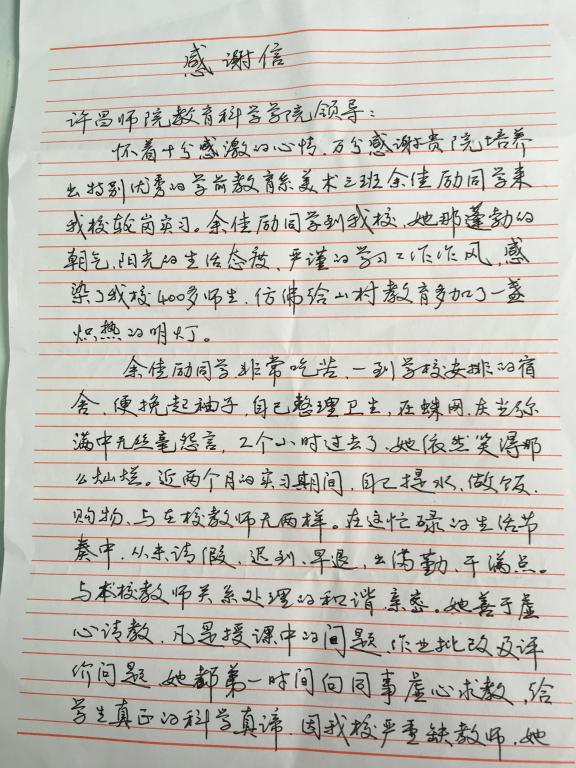 感谢信
许昌师院教育科学学院领导：
怀着十分感激的心情，万分感谢贵院培养
出特别优秀的学前教育系美术三班余佳励同学来
我校轮岗实习。余佳励同学到我校，她那蓬勃的
朝气，阳光的生活态度，严谨的学习工作作风，感
染了我校400多师生，仿佛给山村教育多加了一盏
炽热的明灯。
余佳励同学非常吃苦，一到学校安排的宿
舍，便挽起袖子，自己整理卫生，在蛛网、灰尘弥
满中无丝毫怨言，2个小时过去了，她依然笑得那
么灿烂。近两个月的实习期间，自己提水、做饭、
购物，与在校教师无两样。在这忙碌的生活节
奏中，从未请假、迟到、早退，出满勤，干满点。
与本校教师关系处理的和谐、亲密。她善于虚
心请教，凡是授课中的问题，作业批改及评
价问题，她都第一时间向同事虚心求教，给
学生真正的科学真谛，因我校严重缺教师，她